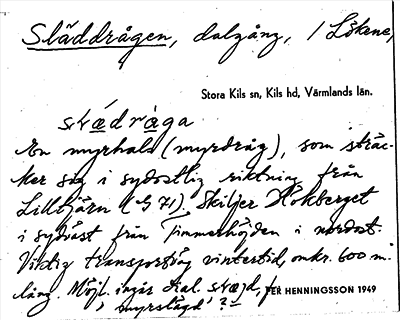 Släddrågen, dalgång, / Lökene,
Stora Kils sn, Kils hd, Värmlands län.
En myrhals (myrdråg), som sträc-
ker sig i sydostlig riktning från
Lilltjärn (G 71). Skiljer Hökberget
i sydväst från Timmerhöjden i nordost.
Viktig transportväg vintertid, omkr. 600 m.
lång. Möjl. ingår dial. f.
PER HENNINGSSON 1949
'myrslägd'?